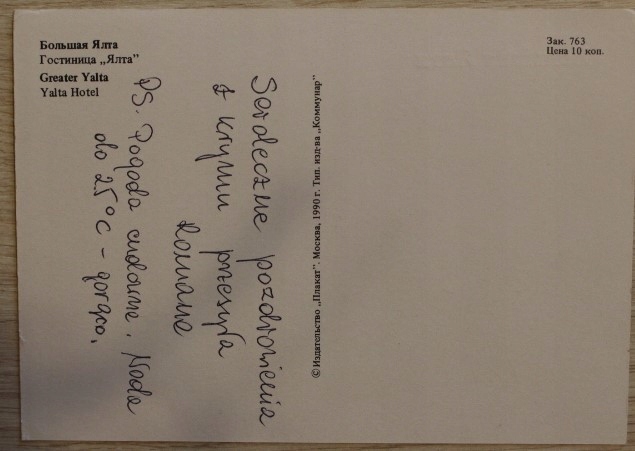 Большая Ялта
Гостиница „Ялта”
Greater Yalta
Yalta Hotel
Зак. 763
Цена 10 коп.
© Издательство „Плакат”. Москва, 1990 г. Тип. изд-ва „Коммунар”
Serdeczne pozdrowienia
z Krymu przesyła
Romana
PS. Pogoda cudowna. Woda
do 25°C – gorąco.